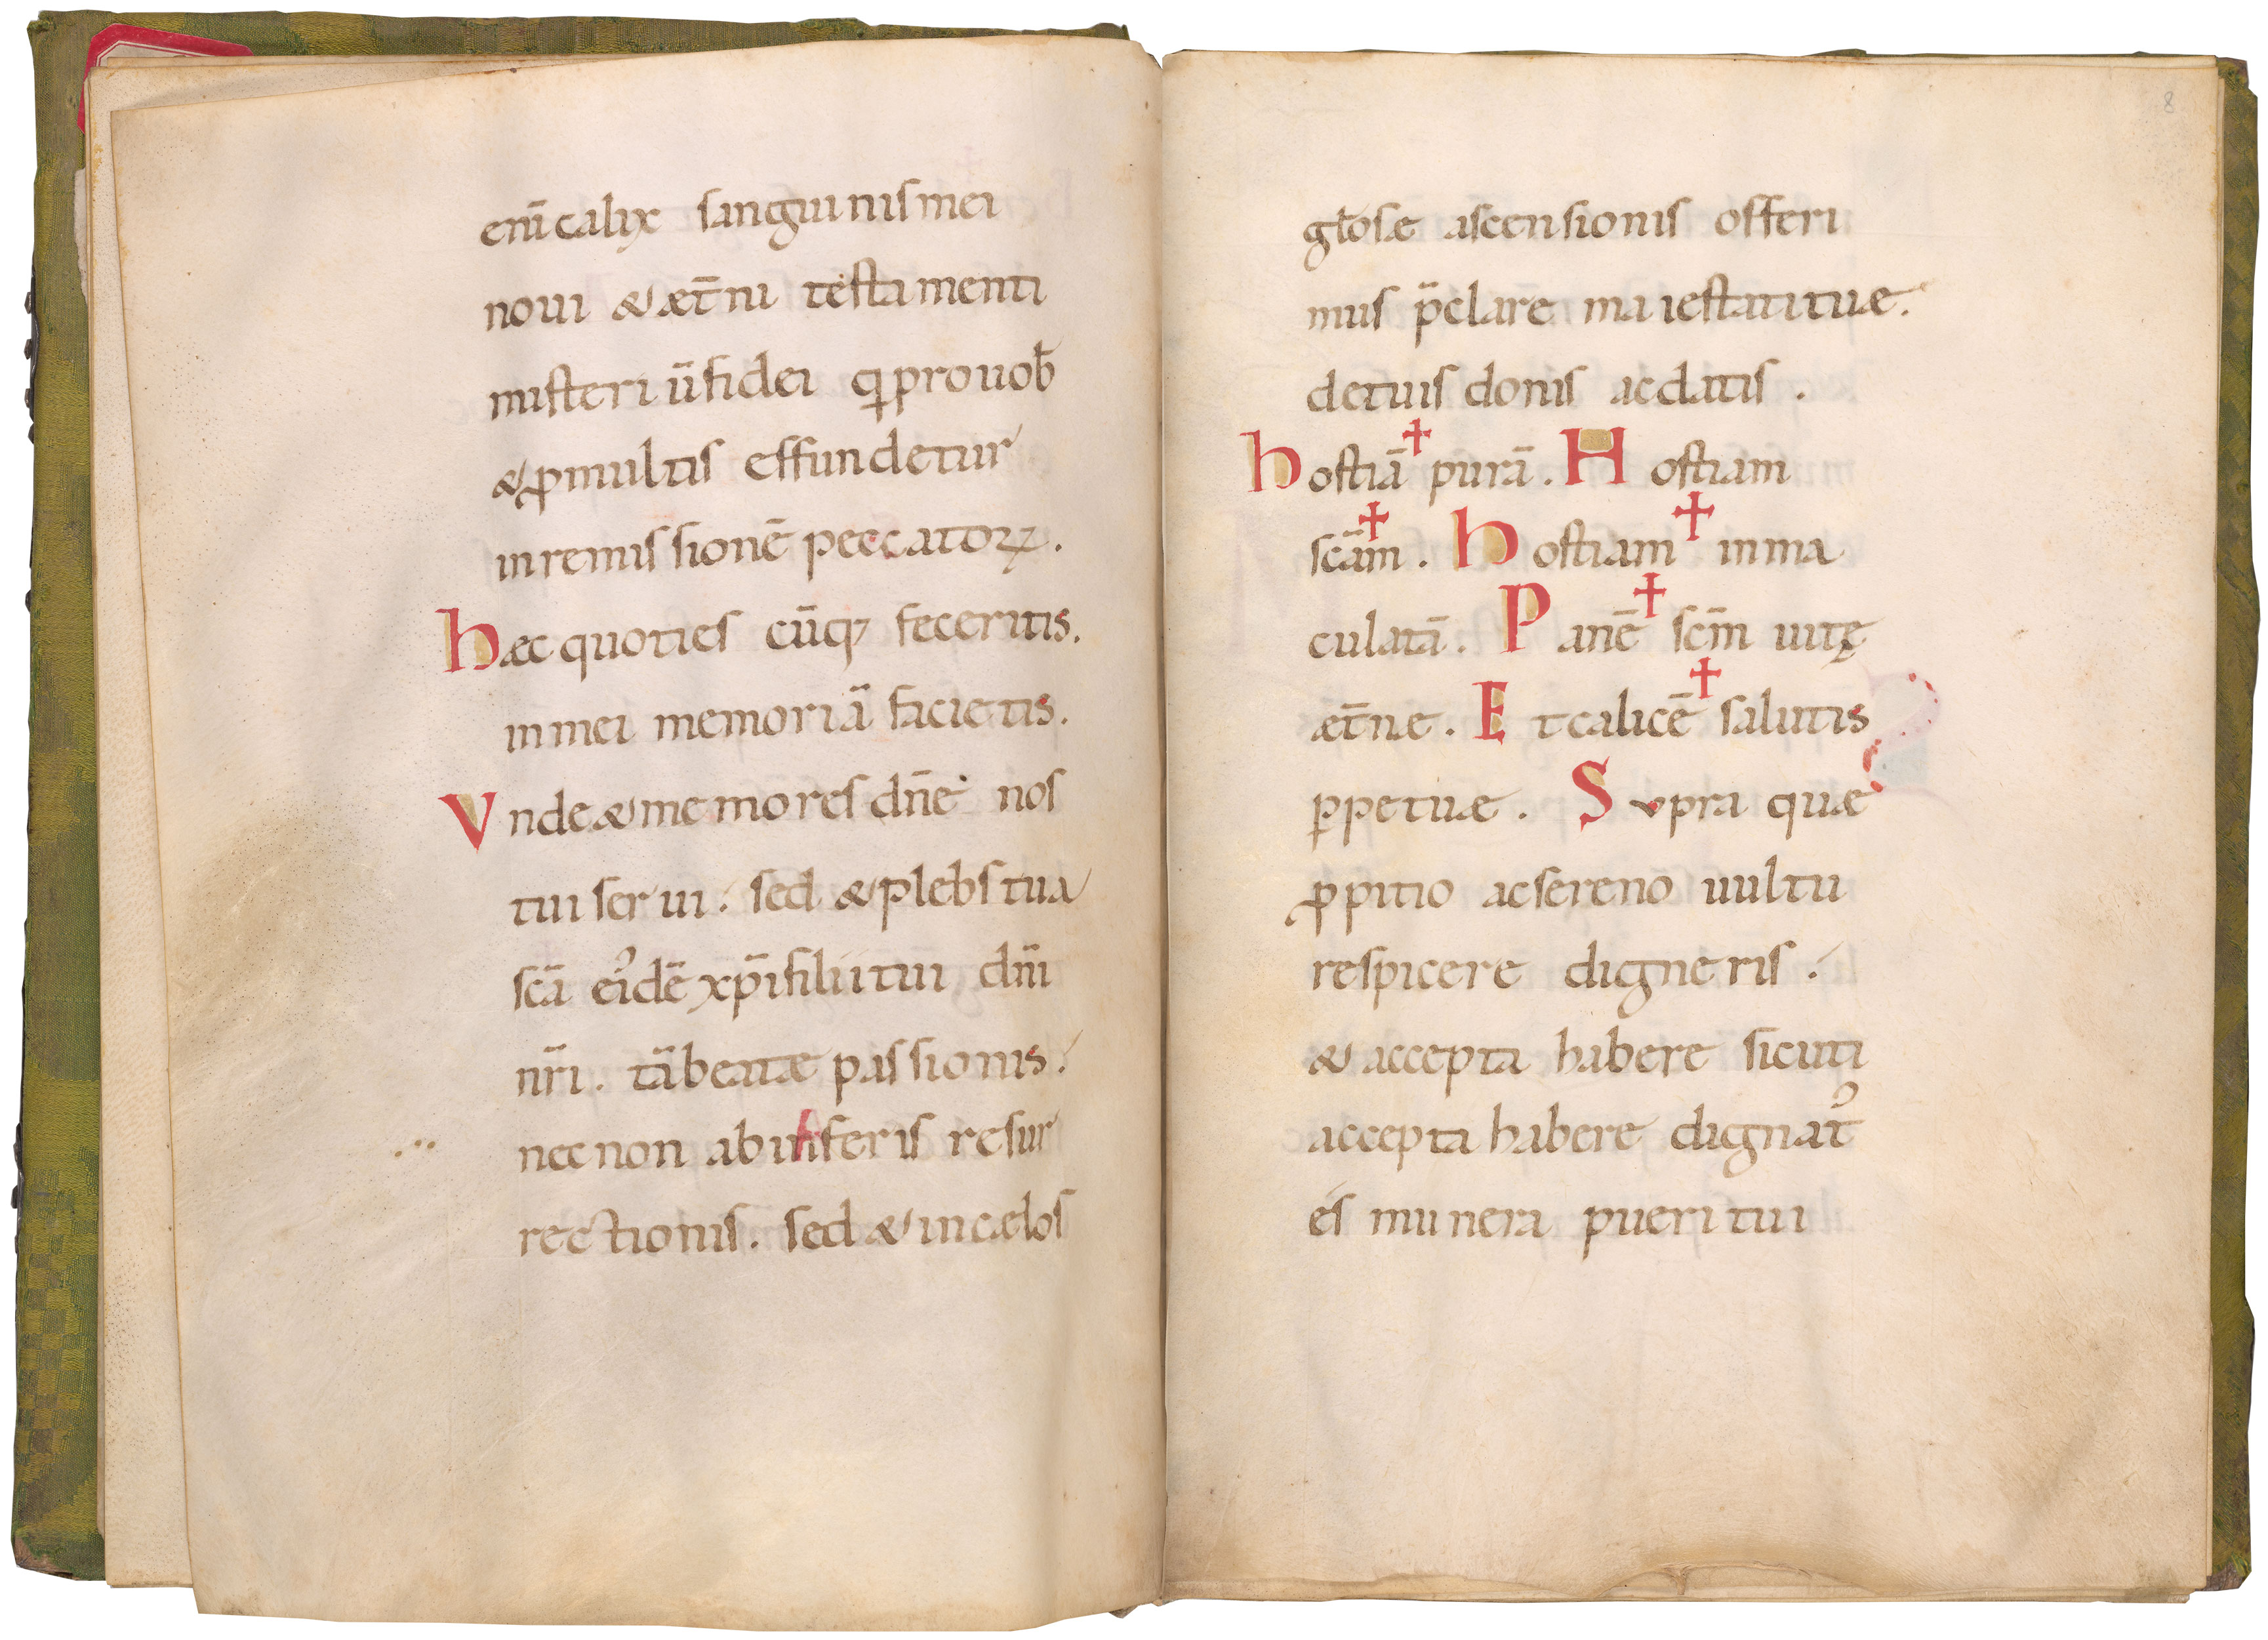 enī calix sanguinis mei
noui & aet̄ni testamenti
misteriū fidei q̄ pro uob̄
& ꝓ multis effundetur
in remissionē peccatoꝝ.
haec quotiescūq; feceritis.
in mei memoriā facietis.
Vnde & memores dn̄e nos
tui serui. sed & plebs tua
scā eiꝰdē xp̄i filii tui dn̄i
nr̄i. tā beatae passionis.
nec non ab inferis resur
rectionis. sed & in caelos
8
gl̄osae ascensionis offeri
mus p̄clare maiestati tuae.
de tuis donis ac datis.
hostiā ✝ purā. Hostiam
✝ scām. hostiam ✝ inma
culatā. Panē ✝ scm̄ uitę
aet̄nae. Et calicē ✝ salutis
ꝑpetuae. Supra quae
ꝓpitio ac sereno uultu
respicere digneris.
& accepta habere sicuti
accepta habere dignatꝰ
es munera pueri tui